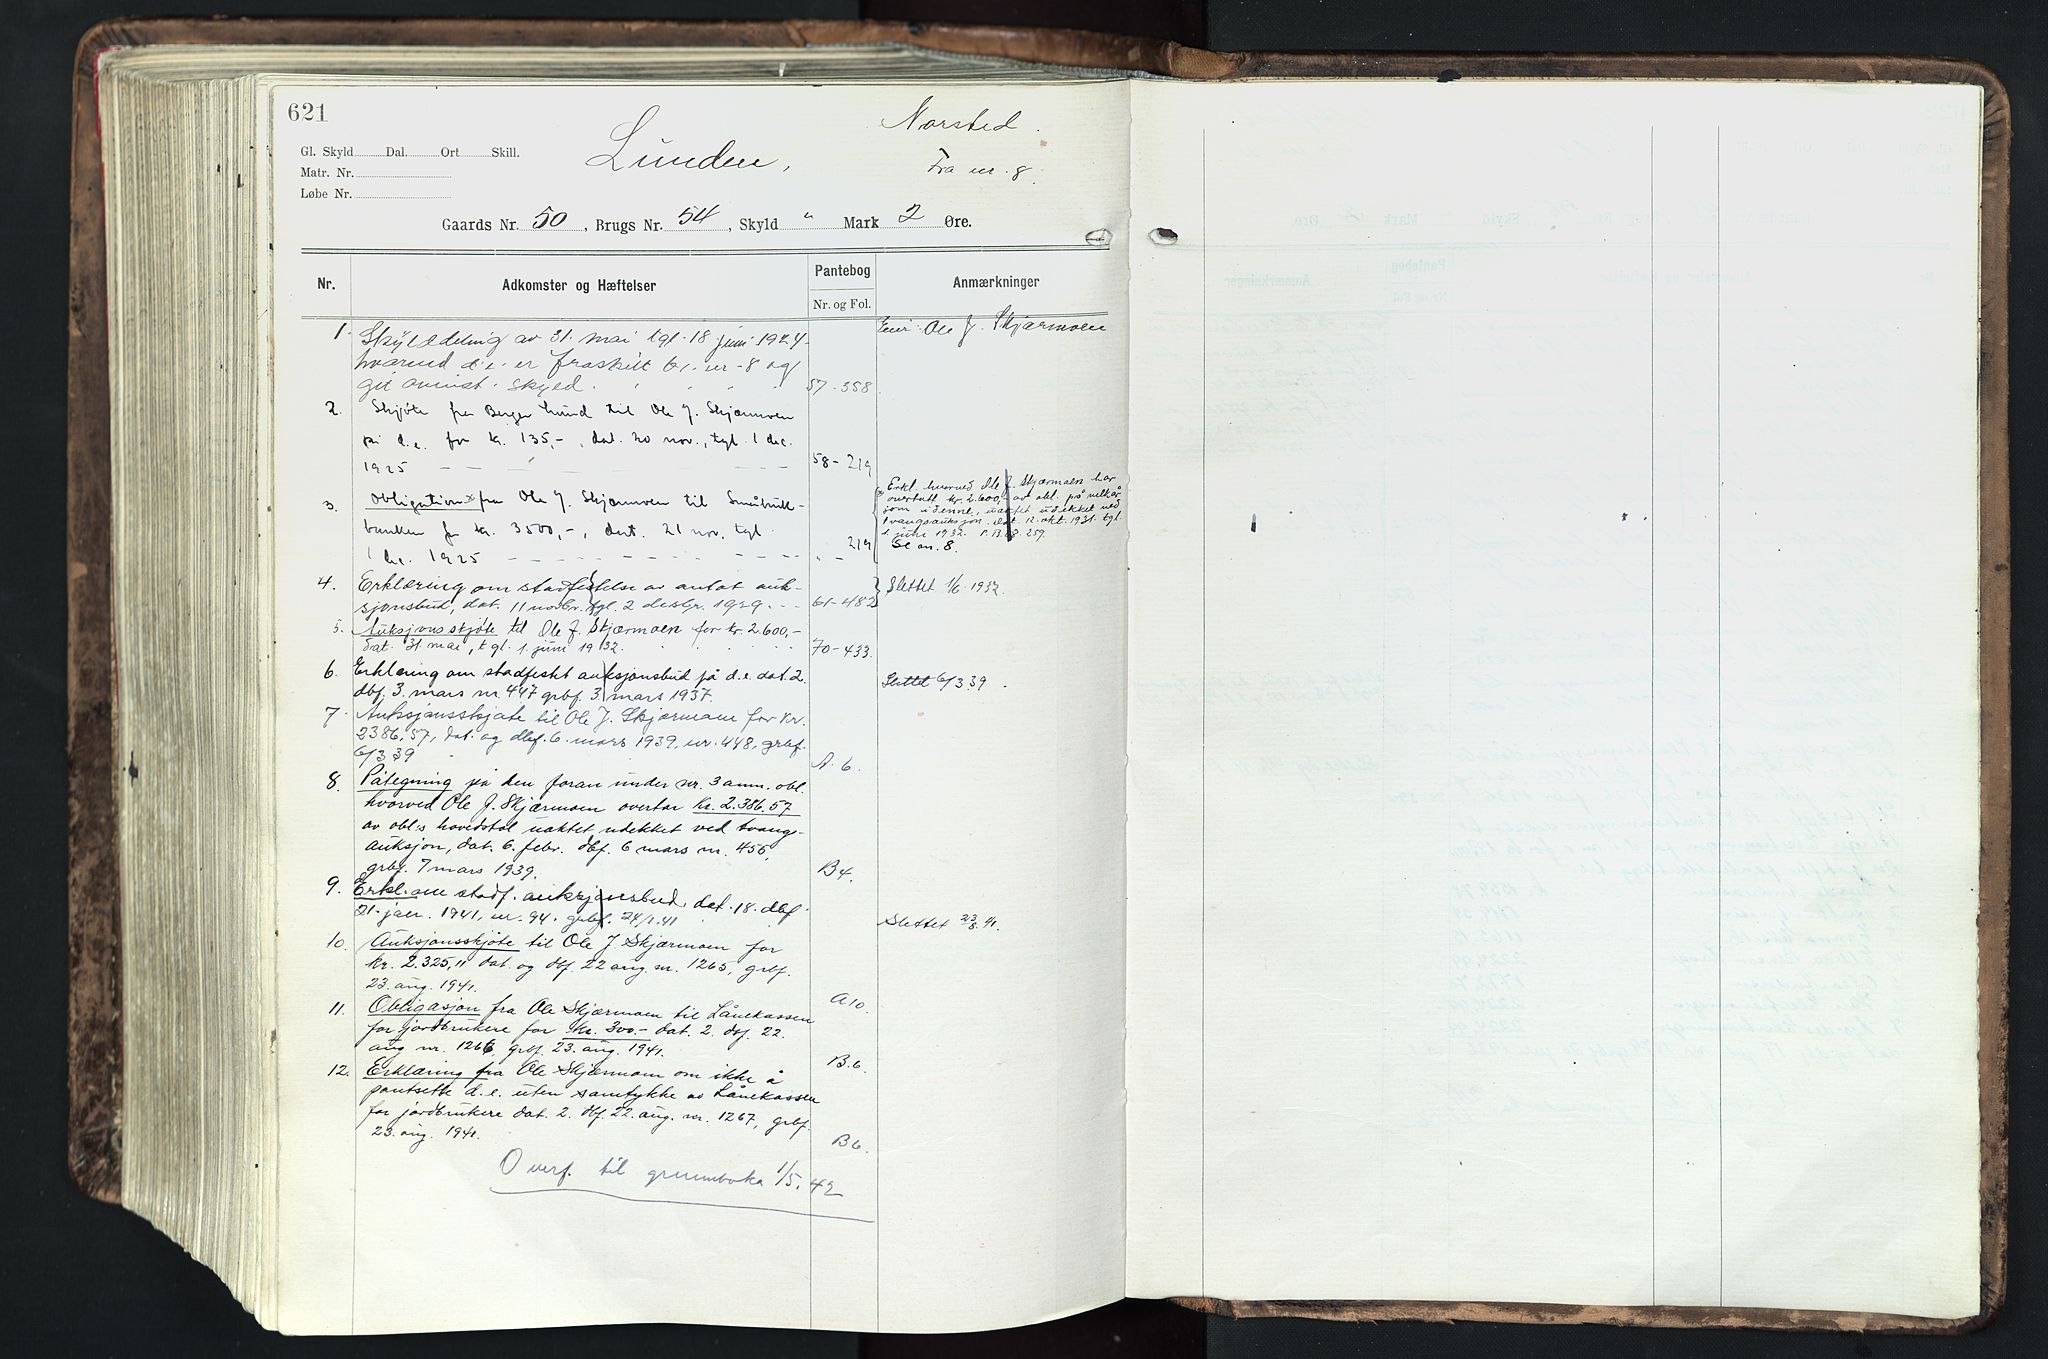 621
Norsted.
Lunden,
Fra nr. 8.
Gl. Skyld Dal. Ort Skill.
Matr. Nr.
Løbe Nr.
Gaards Nr. 50, Brugs Nr. 54, Skyld " Mark 2 Øre.
Nr. Adkomster og Hæftelser Pantebog Anmærkninger
Nr. og Fol.
1. Skylddeling av 31. mai tgl. 18 juni 1924
hvorved d.e. er fraskilt br. nr. 8 og
git ovenst. skyld. 57-358
Eier: Ole J. Skjærmoen
2. Skjøte fra Berger Lund til Ole J. Skjærmoen
på d.e. for kr. 135,-, dat. 20 nov., tgl. 1 dec.
1925 58-219
3. Obligation fra Ole J. Skjærmoen til Småbruk-
banken for kr. 3500,-, dat. 21 nov. tgl.
1 dec. 1925 " - 219
Erkl. hvorved Ole J. Skjærmoen har
overtatt kr. 2.600,- av obl. på vilkår
som i denne, uaktet udekket ved
tvangsauksjon. Dat. 12. okt. 1931. tgl.
1. juni 1932. P.B. 68. 259.
Se nr. 8.
4. Erklæring om stadfestelse av antat auk-
sjonsbud, dat. 11 novbr. tgl. 2 desbr. 1929. 61-482
Slettet 1/6. 1932.
5. Auksjonsskjøte til Ole J. Skjærmoen for kr. 2.600,-
dat. 31 mai, tgl. 1. juni 1932. 70-433.
6. Erklæring om stadfestet auksjonsbud på d.e. dat. 2.
dbf. 3. mars nr. 447 grbf. 3. mars 1937.
Slettet 6/3 39.
7. Auksjonsskjøte til Ole J. Skjærmoen for kr.
2386,57, dat. og dbf. 6. mars 1939, nr. 448, grbf.
6/3 39 A. 6.
8. Påtegning på den foran under nr. 3 anm. obl.
hvorved Ole J. Skjærmoen overtar kr. 2.386.57
av obl:s hovedstol uaktet udekket ved tvangs-
auksjon, dat. 6. febr. dbf. 6 mars nr. 455,
grbf. 7 mars 1939. B4.
9. Erkl. om stadf. auksjonsbud, dat. 18. dbf.
21. jan. 1941, nr. 94. grbf. 24/1.41
Slettet 23/8.41.
10. Auksjonsskjøte til Ole J. Skjærmoen for
kr. 2.325,11 dat. og dbf. 22 aug. nr. 1265, grbf.
23. aug. 1941. A10.
11. Obligasjon fra Ole Skjærmoen til Lånekassen
for jordbrukere for kr. 300.- dat. 2. dbf. 22.
aug nr. 1266, grbf. 23. aug. 1941. B.6.
12. Erklæring fra Ole Skjærmoen om ikke å
pantsette d.e. uten samtykke av Lånekassen
for jordbrukere dat. 2. dbf. 22. aug. nr. 1267, grbf.
23. aug. 1941. B6.
Overf. til grunnboka 1/5. 42